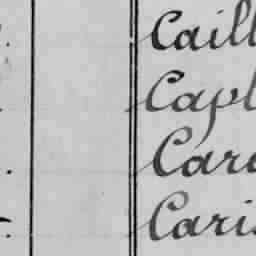 Caill
Capl
Card
Caris